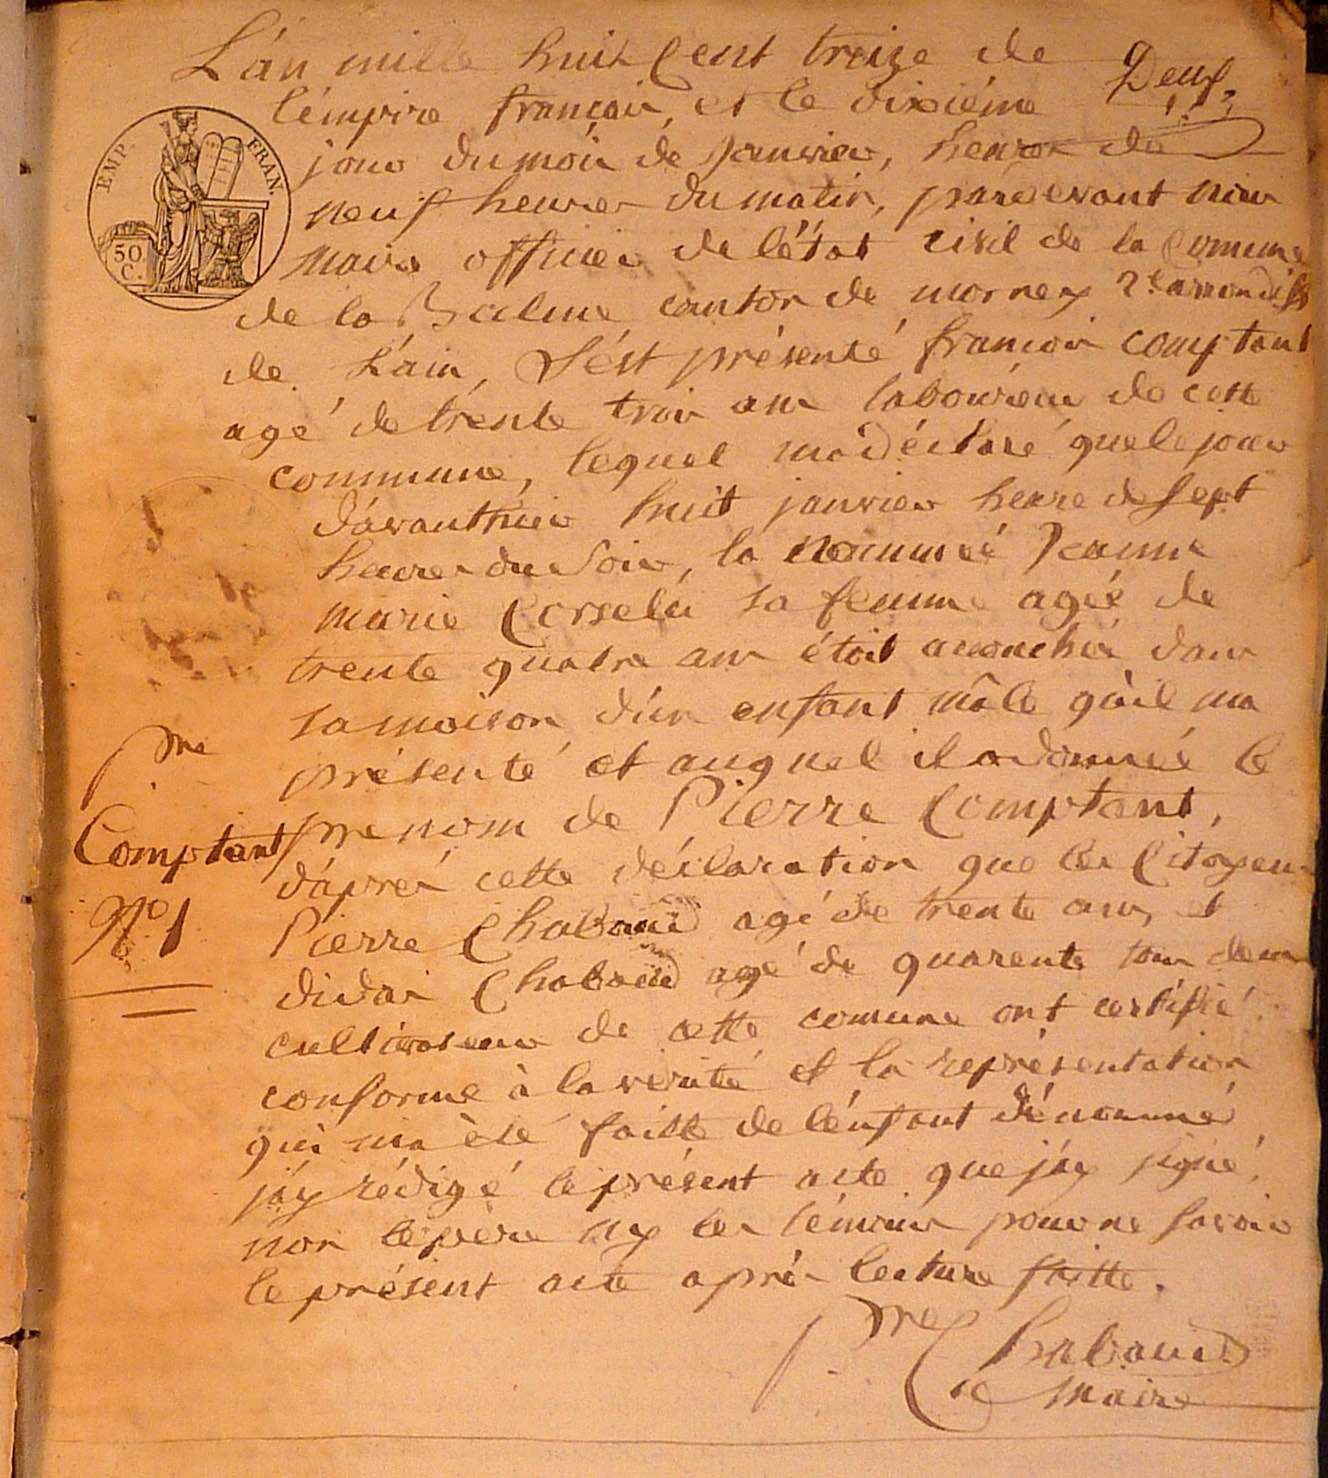 L'an mille huit Cent treize de
Deuf.
l'empire françois, et le dixiéme
jour du mois de Janvier, heure de
neuf heures du matin, pardevant nous
EMP. FRAN.
50 C.
maire officier de l'état civil de la Comune
de la Balme canton de mornex
de L'ain, S'est présenté françois comptant
agé de trente trois ans laboureur de cette
commune, lequel ma déclaré que le jour
d'avanthier huit janvier heure de Sept
heures du Soir, la nommée Jeanne
marie sa femme agée de
trente quatre ans étoit accouchée dans
sa maison d'un enfant mâle qu'il ma
présenté et auquel il a donnée le
prenom de Pierre Comptant,
P.re
Comptant
N.o 1
d'aprés cette déclaration que les Citoyens
Pierre Chabaud agé de trente ans, et
Chabaud agé de quarente tous deux
cultivateurs de cette comune ont certifié
conforme à la vérité et la représentation
qui ma été faitte de l'énfant dénommé
j'ay rédigé le présent acte que j'ay signé,
non le père ny les témoins pour ne savoir
le présent acte aprés lecture faitte.
P.re Chabaud
Maire